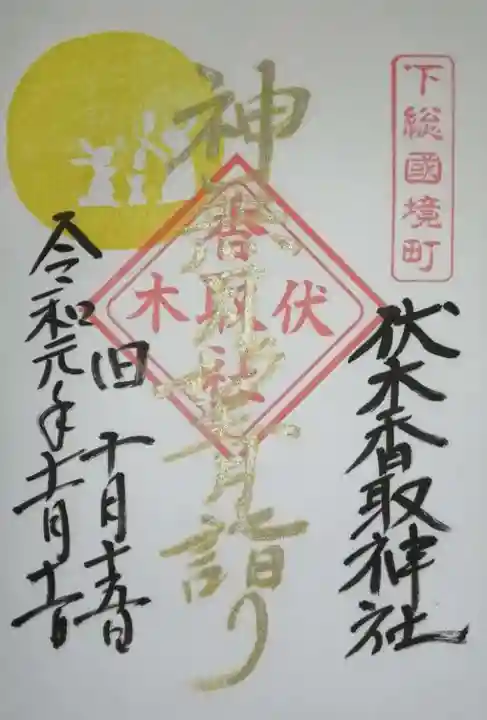 下総國境町
伏木香取神社
神無月 月詣り
伏木
香取社
旧 十月十五日
令和元年十一月十一日